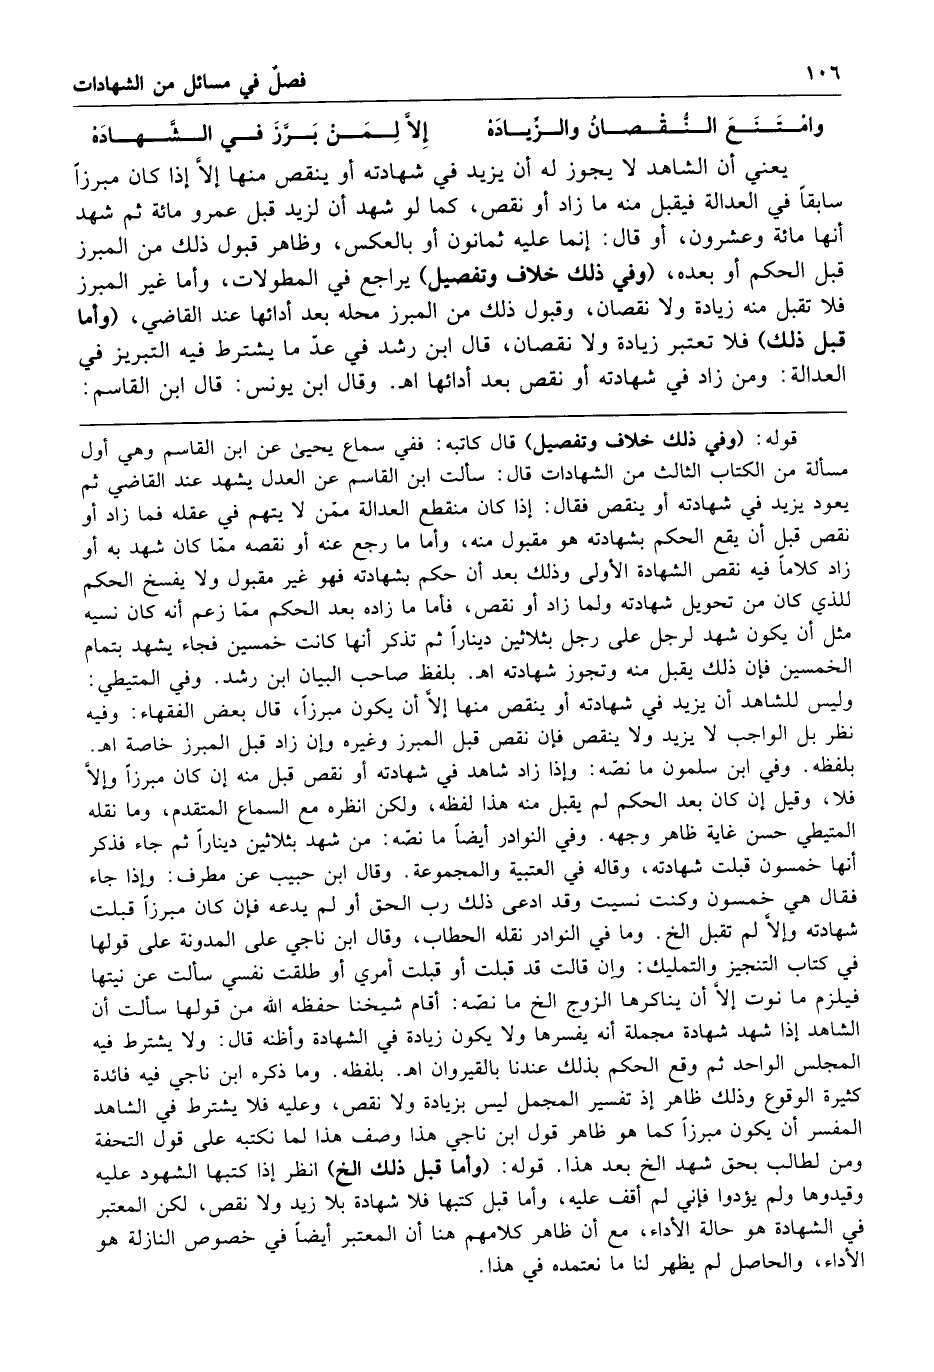 ١٠٦
فصلٌ في مسائل من الشهادات
وامْـتَـنَـعَ الـنُّـقْـصـانُ والـزِّيـادَهْ إلاَّ لِـمَـنْ بَـرَّزَ فـي الـشَّـهـادَهْ
يعني أن الشاهد لا يجوز له أن يزيد في شهادته أو ينقص منها إلاَّ إذا كان مبرزاً
سابقاً في العدالة فيقبل منه ما زاد أو نقص، كما لو شهد أن لزيد قبل عمرو مائة ثم شهد
أنها مائة وعشرون، أو قال: إنما عليه ثمانون أو بالعكس، وظاهر قبول ذلك من المبرز
قبل الحكم أو بعده، (وفي ذلك خلاف وتفصيل) يراجع في المطولات، وأما غير المبرز
فلا تقبل منه زيادة ولا نقصان، وقبول ذلك من المبرز محله بعد أدائها عند القاضي، (وأما
قبل ذلك) فلا تعتبر زيادة ولا نقصان، قال ابن رشد في عدّ ما يشترط فيه التبريز في
العدالة: ومن زاد في شهادته أو نقص بعد أدائها اهـ. وقال ابن يونس: قال ابن القاسم:
قوله: (وفي ذلك خلاف وتفصيل) قال كاتبه: ففي سماع يحيىٰ عن ابن القاسم وهي أول
مسألة من الكتاب الثالث من الشهادات قال: سألت ابن القاسم عن العدل يشهد عند القاضي ثم
يعود يزيد في شهادته أو ينقص فقال: إذا كان منقطع العدالة ممّن لا يتهم في عقله فما زاد أو
نقص قبل أن يقع الحكم بشهادته هو مقبول منه، وأما ما رجع عنه أو نقصه ممّا كان شهد به أو
زاد كلاماً فيه نقص الشهادة الأولى وذلك بعد أن حكم بشهادته فهو غير مقبول ولا يفسخ الحكم
للذي كان من تحويل شهادته ولما زاد أو نقص، فأما ما زاده بعد الحكم ممّا زعم أنه كان نسيه
مثل أن يكون شهد لرجل على رجل بثلاثين ديناراً ثم تذكر أنها كانت خمسين فجاء يشهد بتمام
الخمسين فإن ذلك يقبل منه وتجوز شهادته اهـ. بلفظ صاحب البيان ابن رشد. وفي المتيطي:
وليس للشاهد أن يزيد في شهادته أو ينقص منها إلاَّ أن يكون مبرزاً، قال بعض الفقهاء: وفيه
نظر بل الواجب لا يزيد ولا ينقص فإن نقص قبل المبرز وغيره وإن زاد قبل المبرز خاصة اهـ.
بلفظه. وفي ابن سلمون ما نصّه: وإذا زاد شاهد في شهادته أو نقص قبل منه إن كان مبرزاً وإلاَّ
فلا، وقيل إن كان بعد الحكم لم يقبل منه هذا لفظه، ولكن انظره مع السماع المتقدم، وما نقله
المتيطي حسن غاية ظاهر وجهه. وفي النوادر أيضاً ما نصّه: من شهد بثلاثين ديناراً ثم جاء فذكر
أنها خمسون قبلت شهادته، وقاله في العتبية والمجموعة. وقال ابن حبيب عن مطرف: وإذا جاء
فقال هي خمسون وكنت نسيت وقد ادعى ذلك رب الحق أو لم يدعه فإن كان مبرزاً قبلت
شهادته وإلاَّ لم تقبل الخ. وما في النوادر نقله الحطاب، وقال ابن ناجي على المدونة على قولها
في كتاب التنجيز والتمليك: وإن قالت قد قبلت أو قبلت أمري أو طلقت نفسي سألت عن نيتها
فيلزم ما نوت إلاَّ أن يناكرها الزوج الخ ما نصّه: أقام شيخنا حفظه الله من قولها سألت أن
الشاهد إذا شهد شهادة مجملة أنه يفسرها ولا يكون زيادة في الشهادة وأظنه قال: ولا يشترط فيه
المجلس الواحد ثم وقع الحكم بذلك عندنا بالقيروان اهـ. بلفظه. وما ذكره ابن ناجي فيه فائدة
كثيرة الوقوع وذلك ظاهر إذ تفسير المجمل ليس بزيادة ولا نقص، وعليه فلا يشترط في الشاهد
المفسر أن يكون مبرزاً كما هو ظاهر قول ابن ناجي هذا وصف هذا لما نكتبه على قول التحفة
ومن لطالب بحق شهد الخ بعد هذا. قوله: (وأما قبل ذلك الخ) انظر إذا كتبها الشهود عليه
وقيدوها ولم يؤدوا فإني لم أقف عليه، وأما قبل كتبها فلا شهادة بلا زيد ولا نقص، لكن المعتبر
في الشهادة هو حالة الأداء، مع أن ظاهر كلامهم هنا أن المعتبر أيضاً في خصوص النازلة هو
الأداء، والحاصل لم يظهر لنا ما نعتمده في هذا.